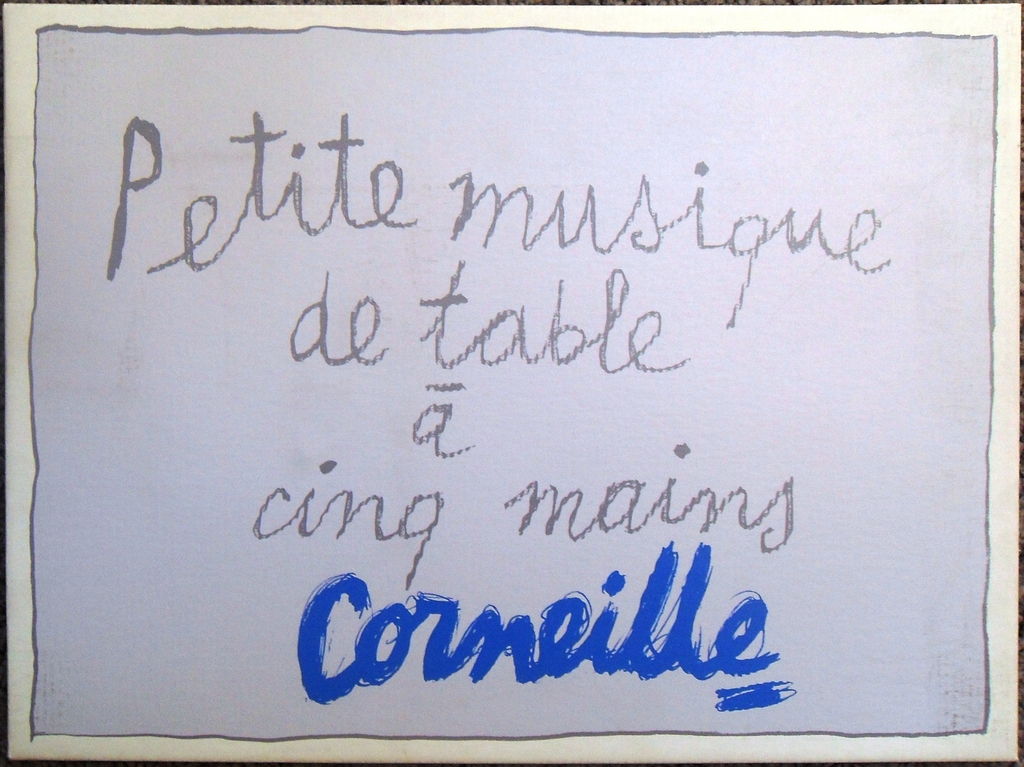 Petite musique
de table
à
cinq mains
Corneille